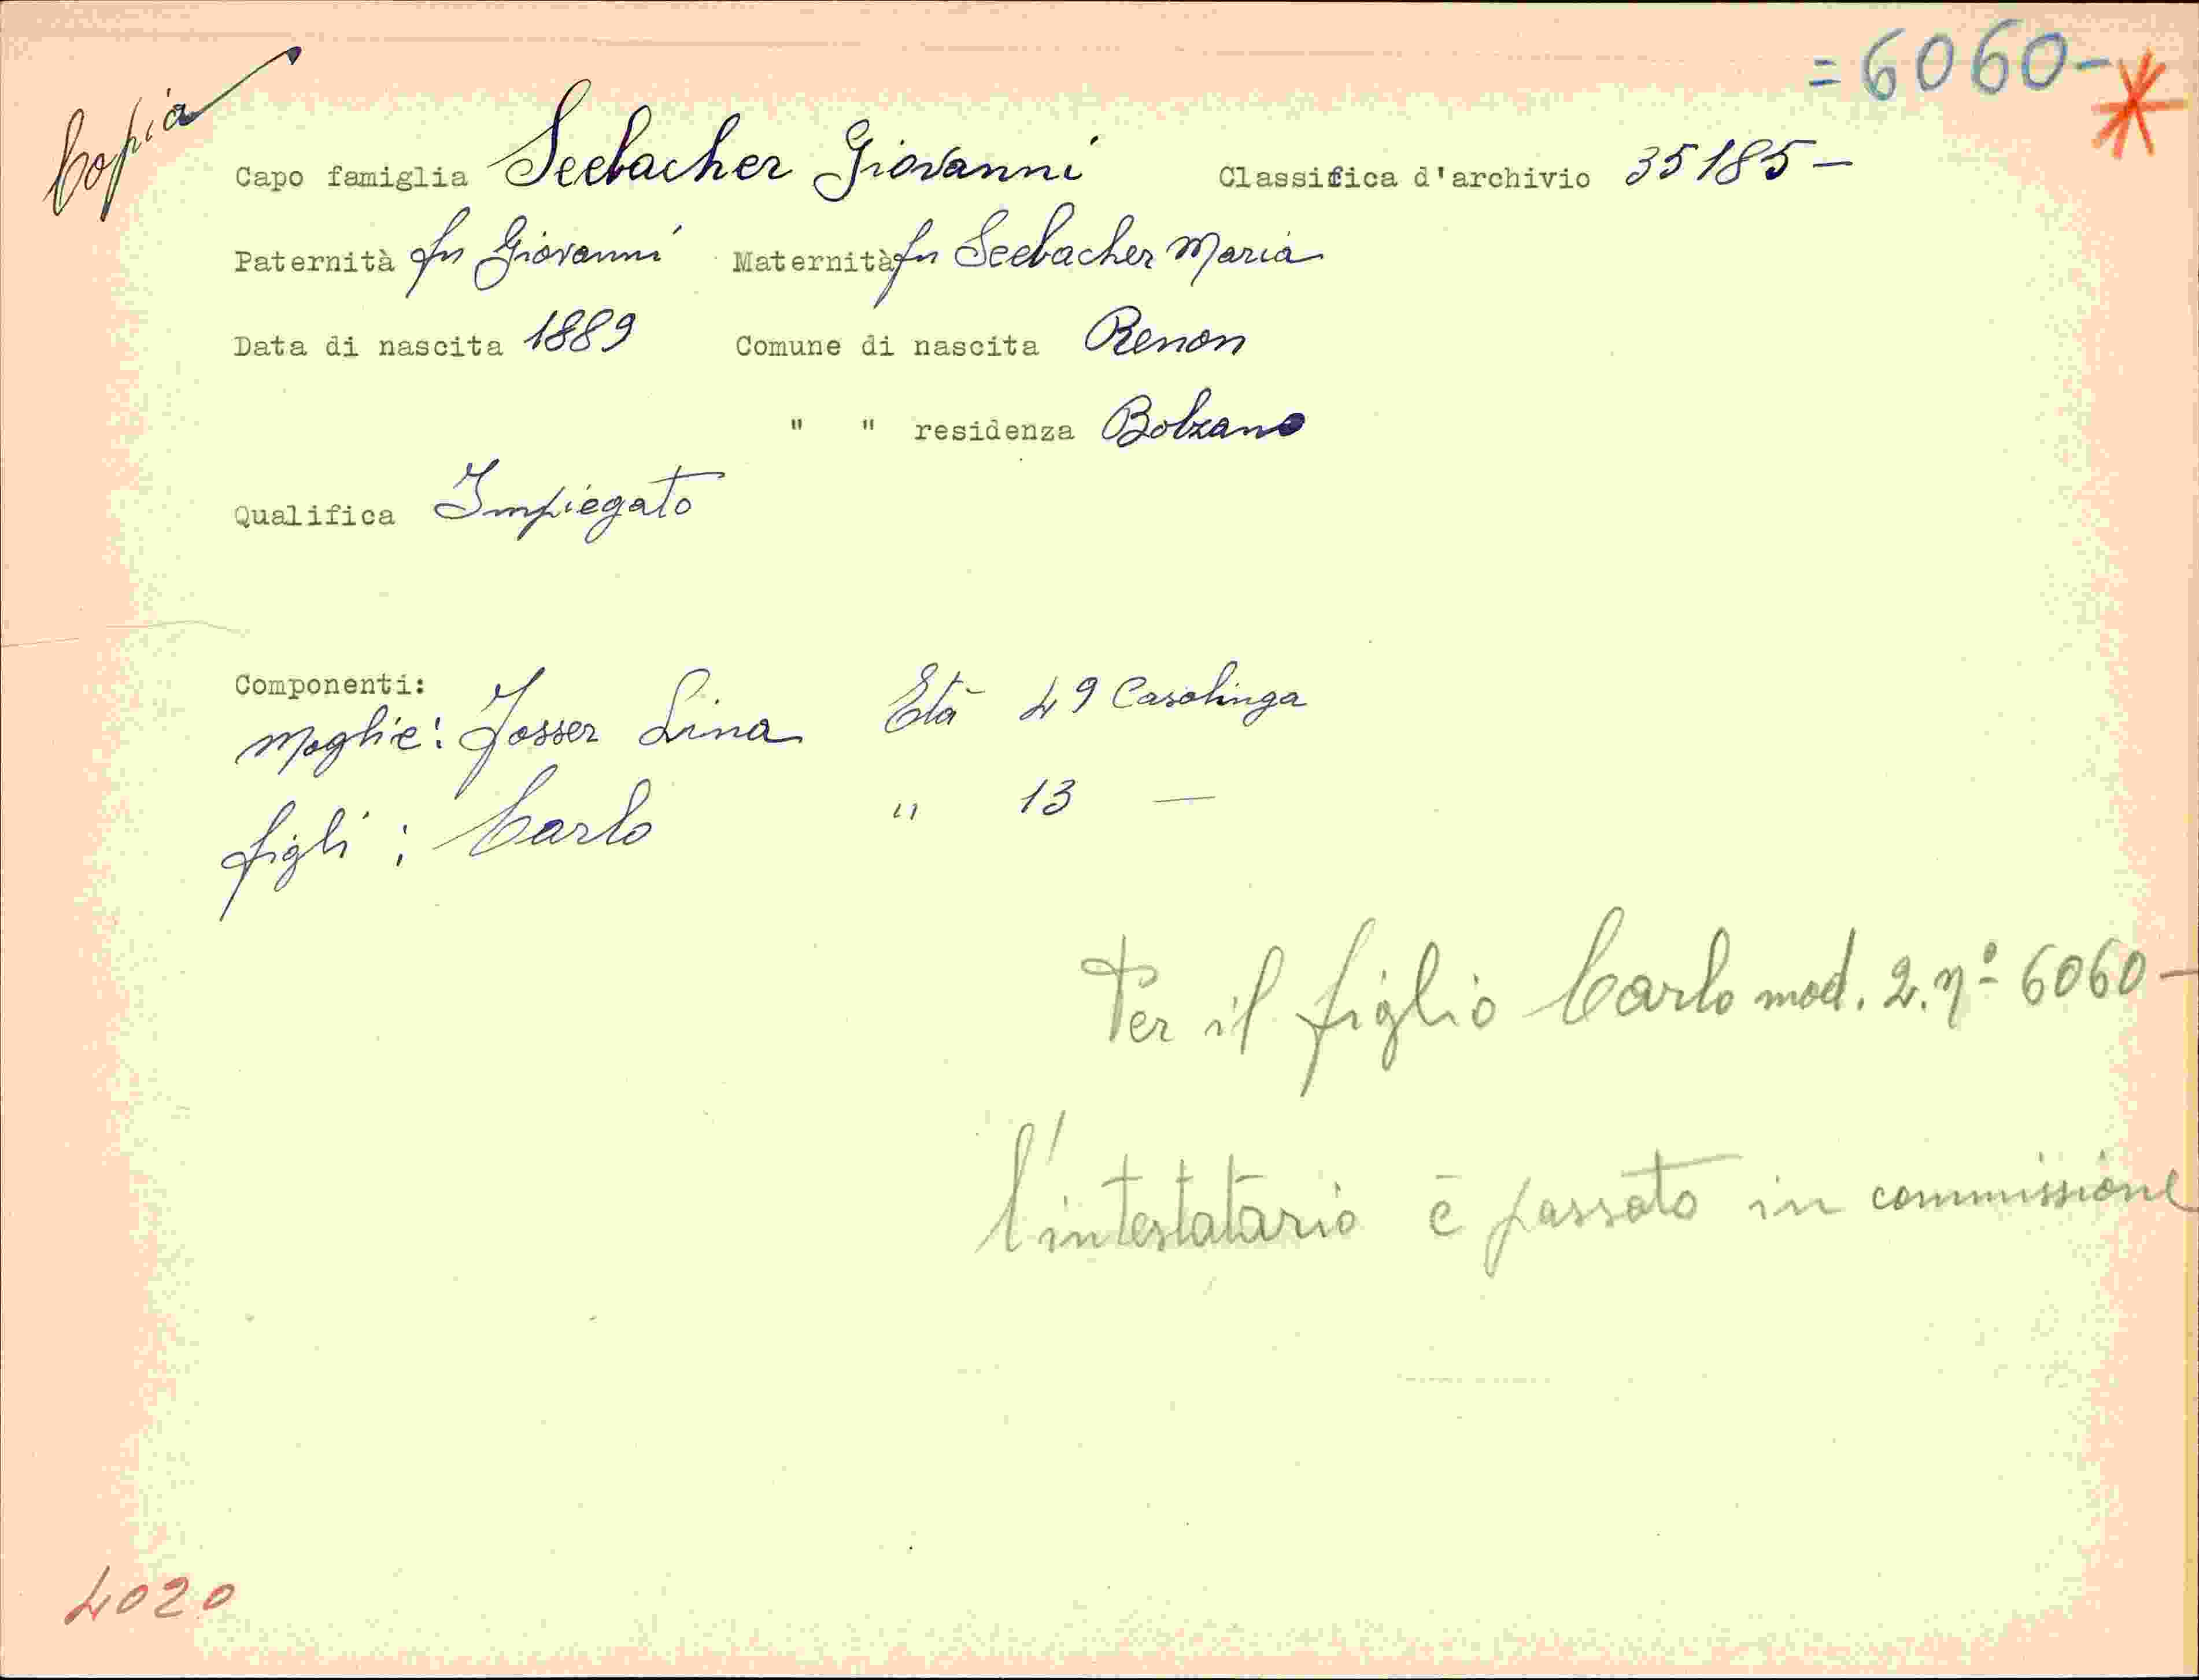 = 6060 - *
Copia
Capo famiglia Seebacher Giovanni Classifica d'archivio 35185 —
Paternità fu Giovanni Maternità fu Seebacher Maria
Data di nascita 1889 Comune di nascita Renon
" " residenza Bolzano
Qualifica Impiegato
Componenti:
Moglie: Josser Lina Età 49 Casalinga
figli: Carlo " 13 —
Per il figlio Carlo mod. 2. nº 6060 —
l'intestatario è passato in commissione
4020